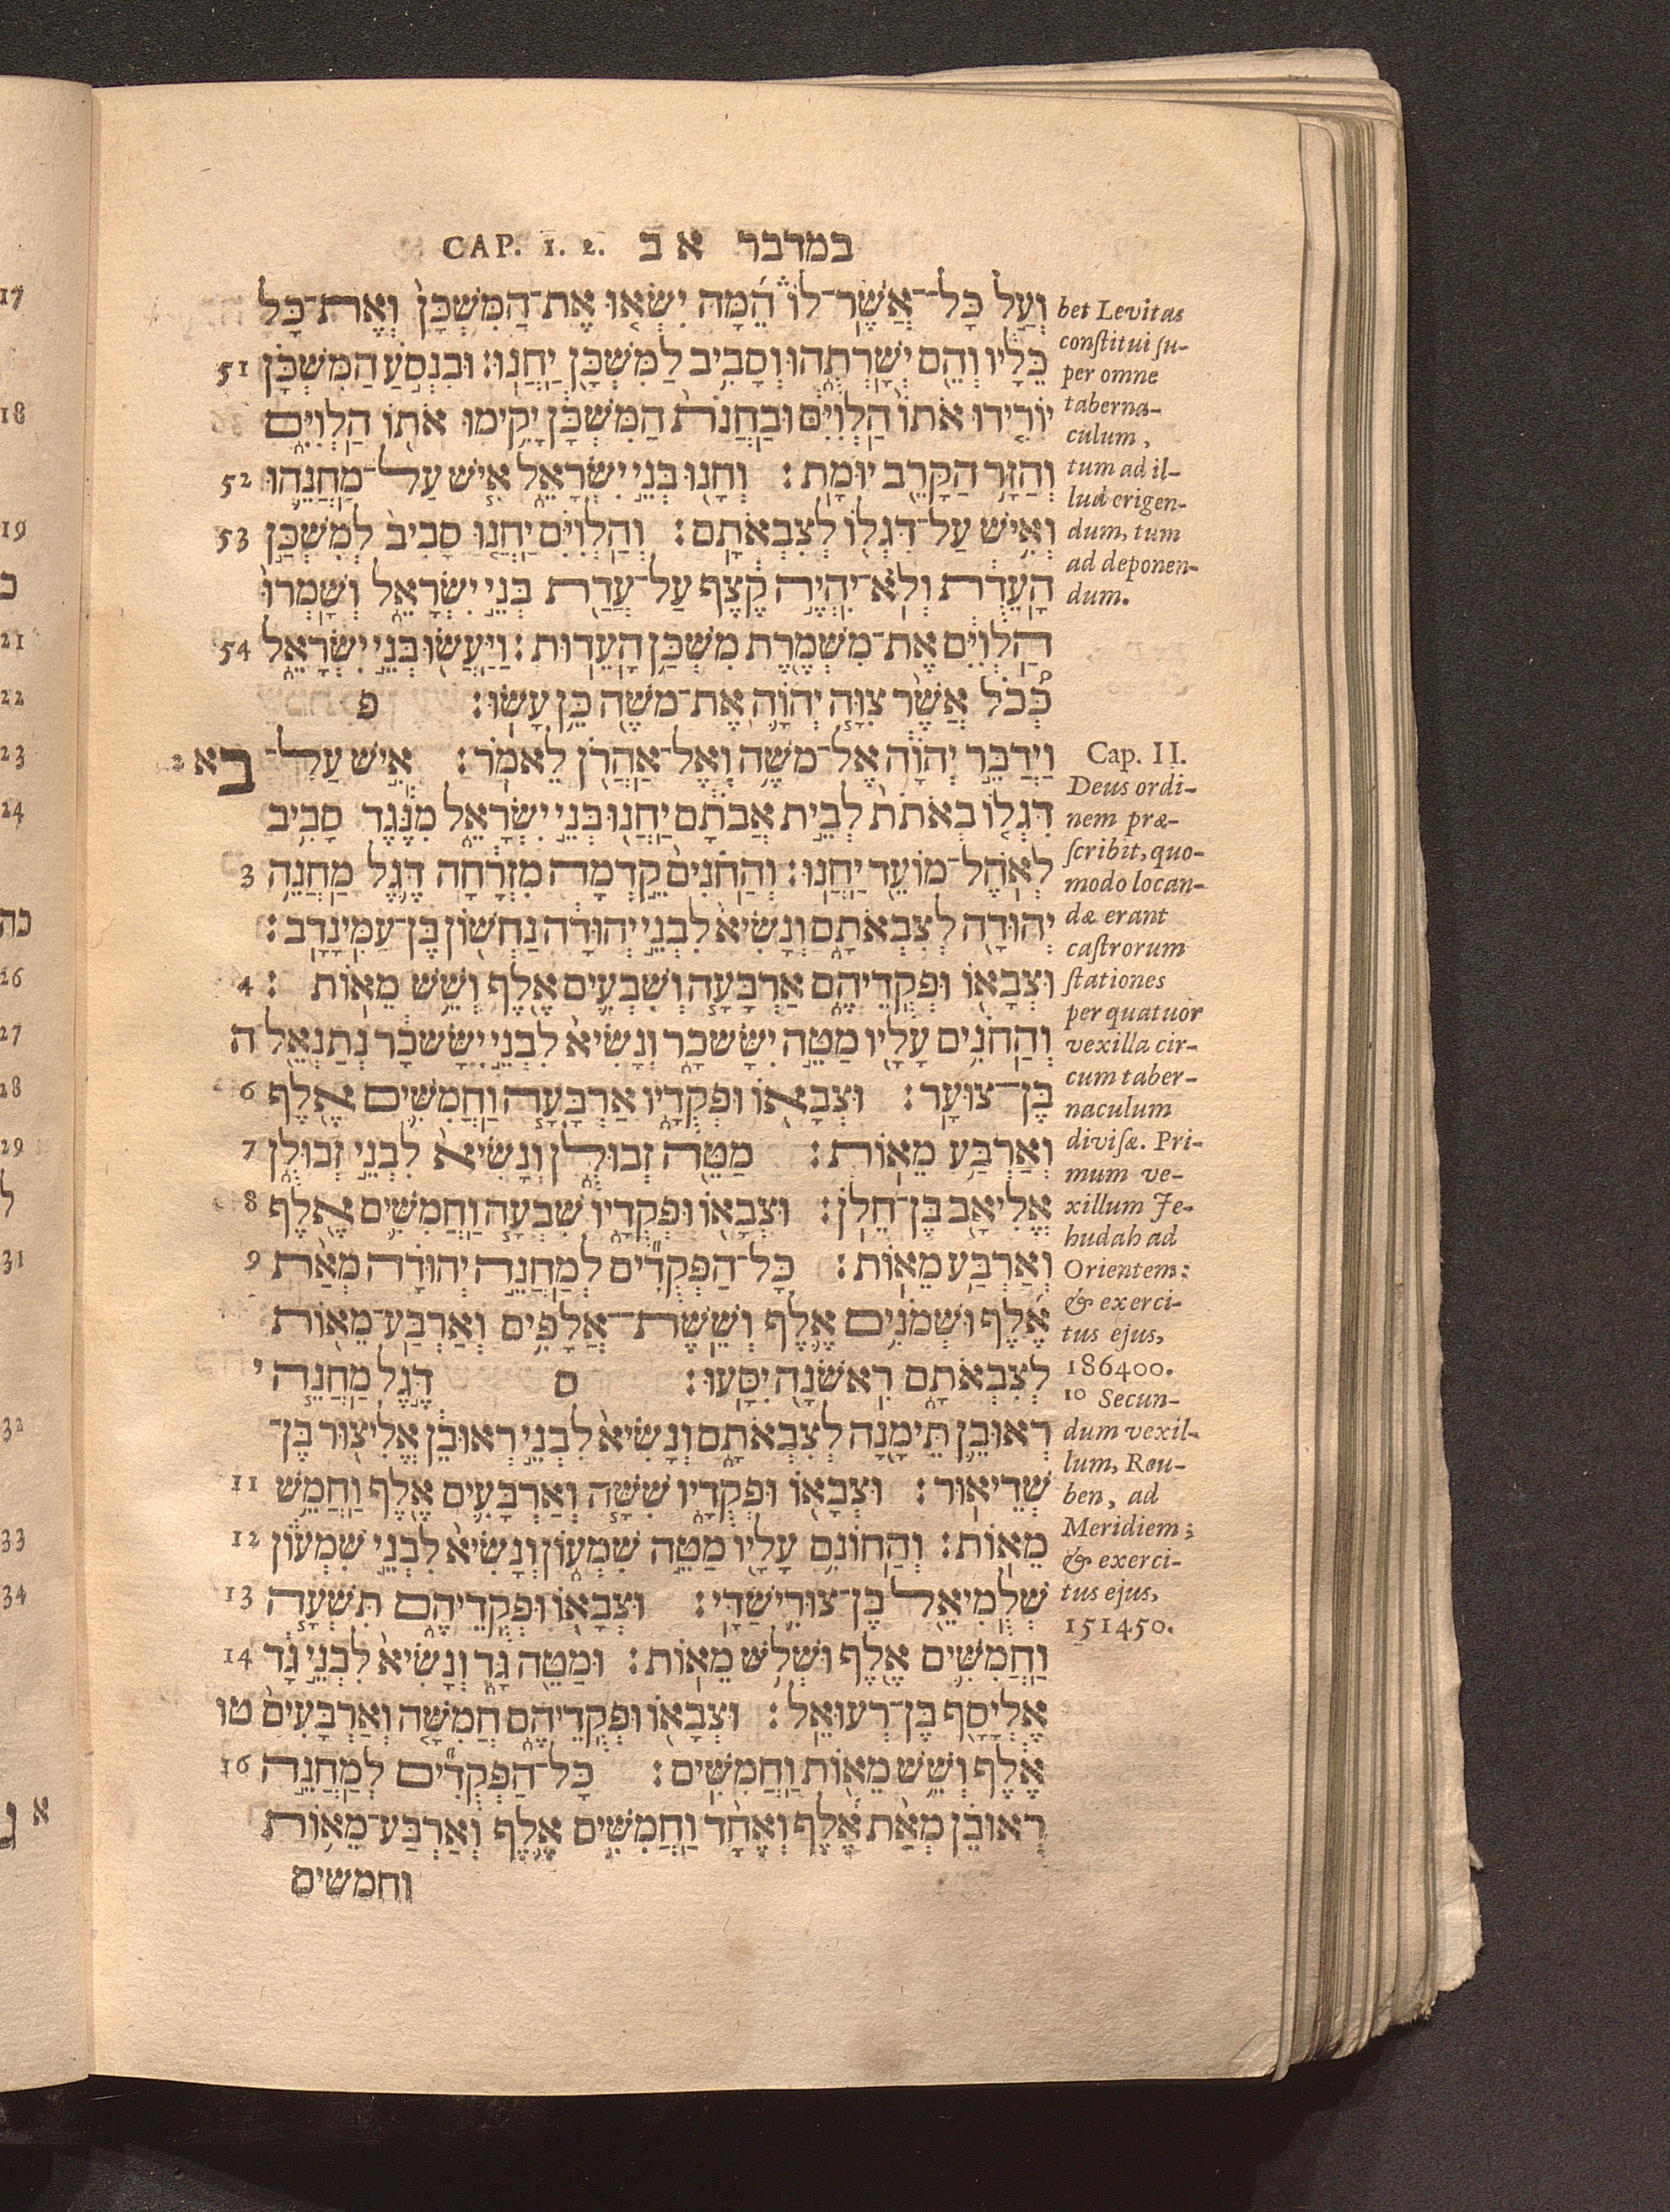 במדבר א ב CAP. 1. 2.
וְעַל כָּל־אֲשֶׁר־לוֹ הֵ֜מָּה יִשְׂא֣וּ אֶת־הַמִּשְׁכָּן֮ וְאֶת־כָּל
כֵּלָיו וְהֵ֖ם יְשָׁרְתֻ֑הוּ וְסָבִ֥יב לַמִּשְׁכָּ֖ן יַחֲנֽוּ׃ וּבִנְסֹ֣עַ הַמִּשְׁכָּ֗ן 51
יוֹרִ֤ידוּ אֹתוֹ֙ הַלְוִיִּ֔ם וּבַחֲנֹת֙ הַמִּשְׁכָּ֔ן יָקִ֥ימוּ אֹת֖וֹ הַלְוִיִּ֑ם
וְהַזָּ֥ר הַקָּרֵ֖ב יוּמָֽת׃ וְחָנ֖וּ בְּנֵ֣י יִשְׂרָאֵ֑ל אִ֧ישׁ עַֽל־מַחֲנֵ֛הוּ 52
וְאִ֥ישׁ עַל־דִּגְל֖וֹ לְצִבְאֹתָֽם׃ וְהַלְוִיִּ֞ם יַחֲנ֤וּ סָבִיב֙ לְמִשְׁכַּ֣ן 53
הָעֵדֻ֔ת וְלֹֽא־יִהְיֶ֣ה קֶ֔צֶף עַל־עֲדַ֖ת בְּנֵ֣י יִשְׂרָאֵ֑ל וְשָׁמְרוּ֙
הַלְוִיִּ֔ם אֶת־מִשְׁמֶ֖רֶת מִשְׁכַּ֥ן הָעֵדֽוּת׃ וַֽיַּעֲשׂ֖וּ בְּנֵ֣י יִשְׂרָאֵ֑ל 54
כְּ֠כֹל אֲשֶׁ֨ר צִוָּ֧ה יְהוָ֛ה אֶת־מֹשֶׁ֖ה כֵּ֥ן עָשֽׂוּ׃ פ
וַיְדַבֵּ֣ר יְהוָ֔ה אֶל־מֹשֶׁ֥ה וְאֶֽל־אַהֲרֹ֖ן לֵאמֹֽר׃ אִ֣ישׁ עַל־ ב א 2
דִּגְל֤וֹ בְאֹתֹת֙ לְבֵ֣ית אֲבֹתָ֔ם יַחֲנ֖וּ בְּנֵ֣י יִשְׂרָאֵ֑ל מִנֶּ֕גֶד סָבִ֥יב
לְאֹֽהֶל־מוֹעֵ֖ד יַחֲנֽוּ׃ וְהַחֹנִים֙ קֵ֣דְמָה מִזְרָ֔חָה דֶּ֛גֶל מַחֲנֵ֥ה 3
יְהוּדָ֖ה לְצִבְאֹתָ֑ם וְנָשִׂיא֙ לִבְנֵ֣י יְהוּדָ֔ה נַחְשׁ֖וֹן בֶּן־עַמִּינָדָֽב׃
וּצְבָא֖וֹ וּפְקֻדֵיהֶ֑ם אַרְבָּעָ֧ה וְשִׁבְעִ֛ים אֶ֖לֶף וְשֵׁ֥שׁ מֵאֽוֹת׃ 4
וְהַחֹנִ֥ים עָלָ֖יו מַטֵּ֣ה יִשָּׂשכָ֑ר וְנָשִׂיא֙ לִבְנֵ֣י יִשָּׂשכָ֔ר נְתַנְאֵ֖ל ה
בֶּן־צוּעָֽר׃ וּצְבָא֖וֹ וּפְקֻדָ֑יו אַרְבָּעָ֧ה וַחֲמִשִּׁ֛ים אֶ֖לֶף 6
וְאַרְבַּ֥ע מֵאֽוֹת׃ מַטֵּ֖ה זְבוּלֻ֑ן וְנָשִׂיא֙ לִבְנֵ֣י זְבוּלֻ֔ן 7
אֱלִיאָ֖ב בֶּן־חֵלֹֽן׃ וּצְבָא֖וֹ וּפְקֻדָ֑יו שִׁבְעָ֧ה וַחֲמִשִּׁ֛ים אֶ֖לֶף 8
וְאַרְבַּ֥ע מֵאֽוֹת׃ כָּֽל־הַפְּקֻדִ֞ים לְמַחֲנֵ֣ה יְהוּדָ֗ה מְאַ֨ת 9
אֶ֜לֶף וּשְׁמֹנִ֥ים אֶ֛לֶף וְשֵֽׁשֶׁת־אֲלָפִ֥ים וְאַרְבַּע־מֵא֖וֹת
לְצִבְאֹתָ֑ם רִאשֹׁנָ֖ה יִסָּֽעוּ׃ ס דֶּ֣גֶל מַחֲנֵ֧ה י
רְאוּבֵ֛ן תֵּימָ֖נָה לְצִבְאֹתָ֑ם וְנָשִׂיא֙ לִבְנֵ֣י רְאוּבֵ֔ן אֱלִיצ֖וּר בֶּן־
שְׁדֵיאֽוּר׃ וּצְבָא֖וֹ וּפְקֻדָ֑יו שִׁשָּׁ֧ה וְאַרְבָּעִ֛ים אֶ֖לֶף וַחֲמֵ֥שׁ 11
מֵאֽוֹת׃ וְהַחוֹנִ֥ם עָלָ֖יו מַטֵּ֣ה שִׁמְע֑וֹן וְנָשִׂיא֙ לִבְנֵ֣י שִׁמְע֔וֹן 12
שְׁלֻמִיאֵ֖ל בֶּן־צוּרִֽישַׁדָּֽי׃ וּצְבָא֖וֹ וּפְקֻדֵיהֶ֑ם תִּשְׁעָ֧ה 13
וַחֲמִשִּׁ֛ים אֶ֖לֶף וּשְׁלֹ֥שׁ מֵאֽוֹת׃ וּמַטֵּ֖ה גָּ֑ד וְנָשִׂיא֙ לִבְנֵ֣י גָ֔ד 14
אֶלְיָסָ֖ף בֶּן־רְעוּאֵֽל׃ וּצְבָא֖וֹ וּפְקֻדֵיהֶ֑ם חֲמִשָּׁ֤ה וְאַרְבָּעִים֙ טו
אֶ֔לֶף וְשֵׁ֥שׁ מֵא֖וֹת וַחֲמִשִּֽׁים׃ כָּֽל־הַפְּקֻדִ֞ים לְמַחֲנֵ֣ה 16
רְאוּבֵ֗ן מְאַ֨ת אֶ֜לֶף וְאֶחָ֨ד וַחֲמִשִּׁ֥ים אֶ֛לֶף וְאַרְבַּע־מֵא֥וֹת
וחמשים
bet Levitas
constitui su-
per omne
taberna-
culum,
tum ad il-
lud erigen-
dum, tum
ad deponen-
dum.
Cap. II.
Deus ordi-
nem præ-
scribit, quo-
modo locan-
dæ erant
castrorum
stationes
per quatuor
vexilla cir-
cum taber-
naculum
divisæ. Pri-
mum ve-
xillum Je-
hudah ad
Orientem;
& exerci-
tus ejus,
186400.
10 Secun-
dum vexil-
lum, Reu-
ben, ad
Meridiem;
& exerci-
tus ejus,
151450.
17
18
19
כ
21
22
23
24
כה
26
27
28
29
ל
31
32
33
34
א ג